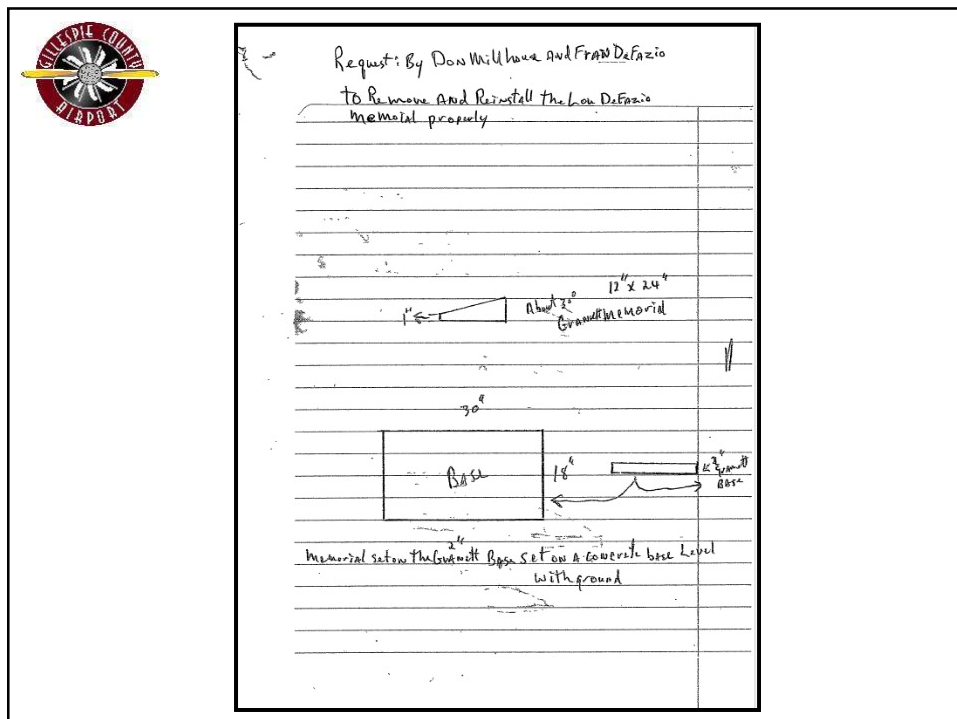 GILLESPIE COUNTY
AIRPORT
Request: By Don Millhouse And FRAN DeFazio
to Remove And Reinstall the Lou DeFazio
Memoial properly
12" x 24"
About 30°
Granett Memorial
1"
30"
Base
18"
Granett
Base
2"
Memorial set on the Granett Base Set on A Concrete base Level
with ground